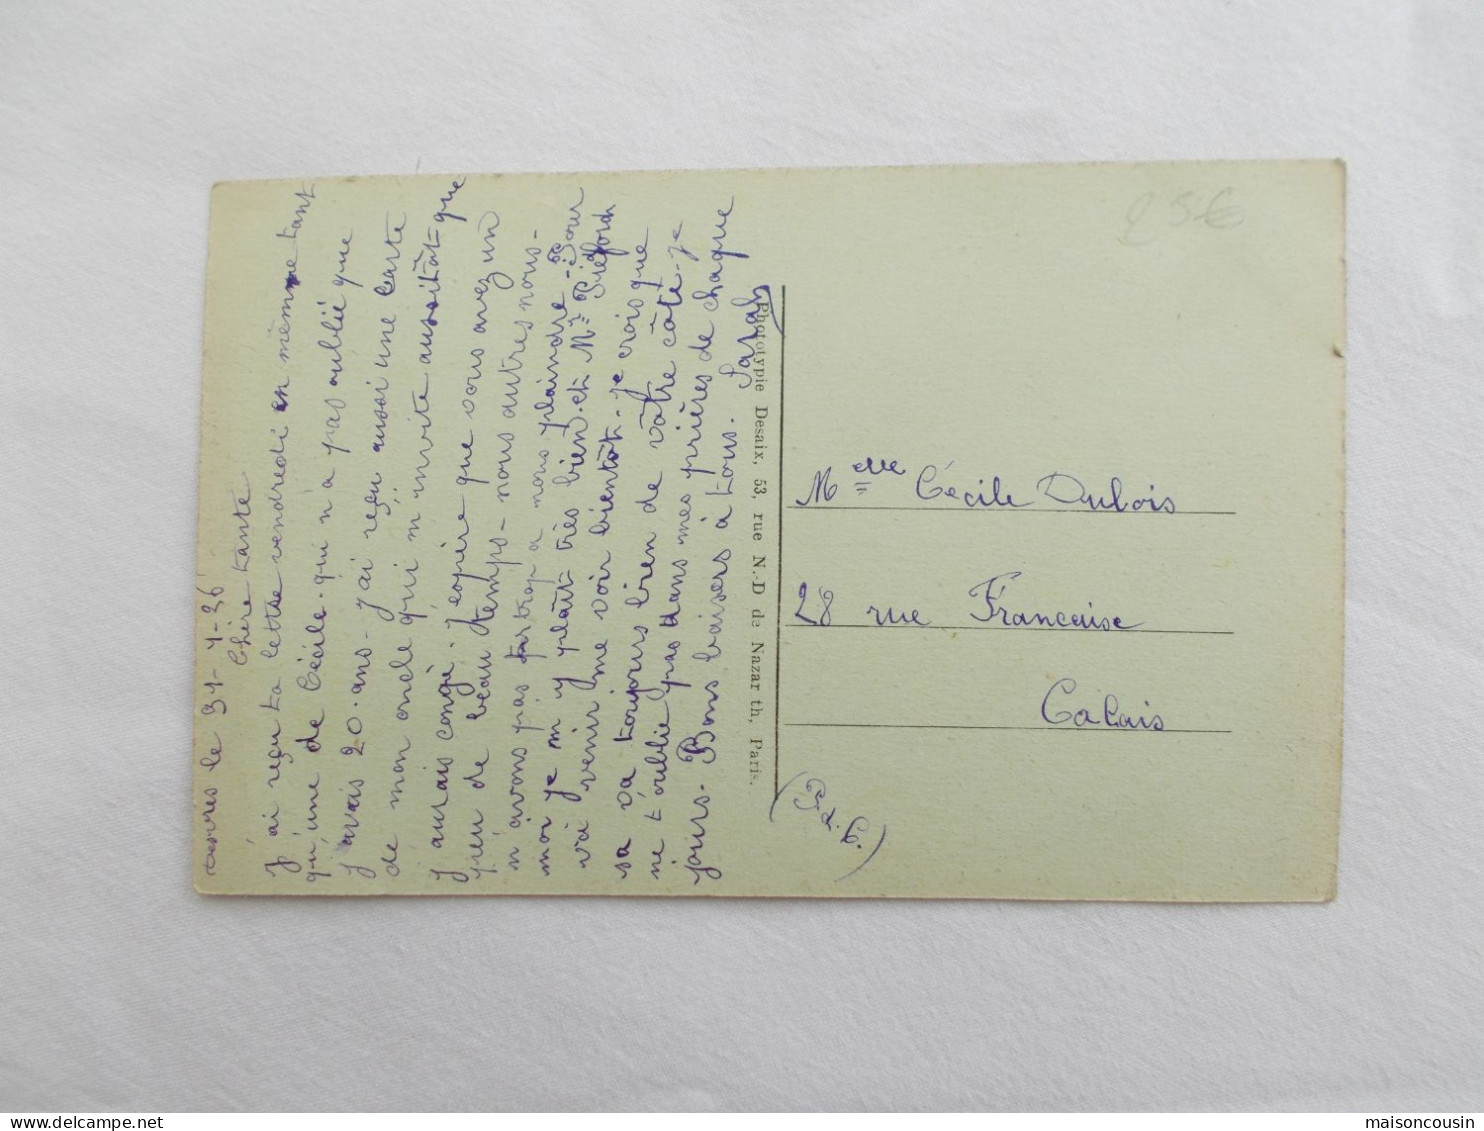 le 31-7-36
Chère tante
j'ai reçu ta lettre vendredi en même tant
qu'une de Cécile. qui n'a pas oublié que
j'avais 20. ans. j'ai reçu aussi une carte
de mon oncle qui m'invite aussitôt que
j'aurais congé. J'espère que vous avez un
peu de beau temps - nous autres nous
n'avons pas trop a nous plaindre. Pour
moi je m'y plaît très bien. et Mr
va venir me voir bientôt. je crois que
sa va toujours bien de vôtre côté. je
ne t'oublie pas dans mes prières de chaque
jours. Bons baisers à tous. Sarah
Phototypie Desaix, 53, rue N.-D de Nazar th, Paris.
Melle Cécile Dubois
28 rue Francaise
Calais
(P. d. C.)
25€
maisoncousin